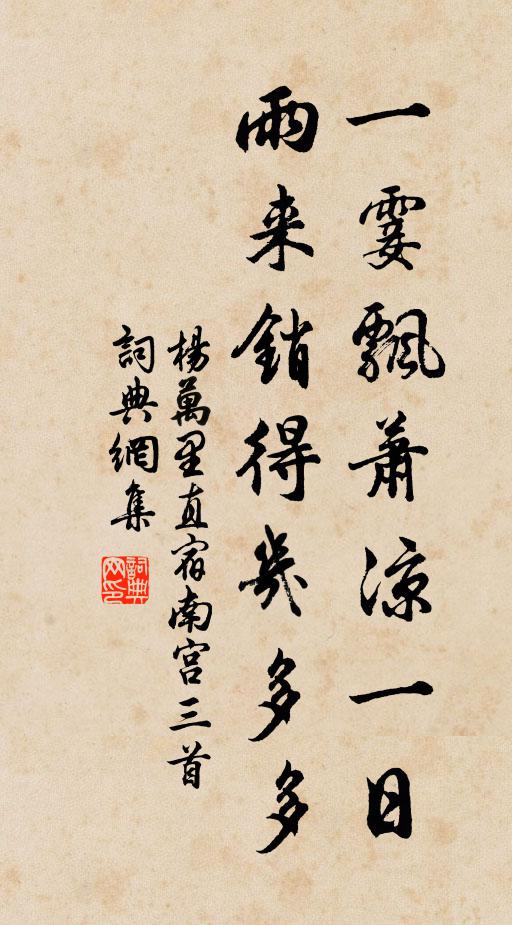 一霎飄蕭涼一日
雨来銷得幾多多
楊萬里直宿南宮三首
詞典網集
詞典
网印